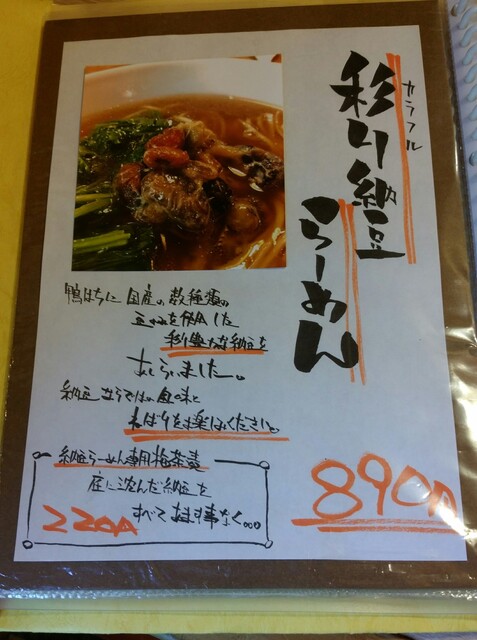 カラフル
彩り納豆
らーめん
国産の数種類の
豆のみを使用した
彩り豊かな納豆を
あしらいました。
納豆ならではの風味と
ねばりをお楽しみください。
890円
納豆らーめん専用
底に沈んだ納豆を
すべて余す事なく。。。
220円